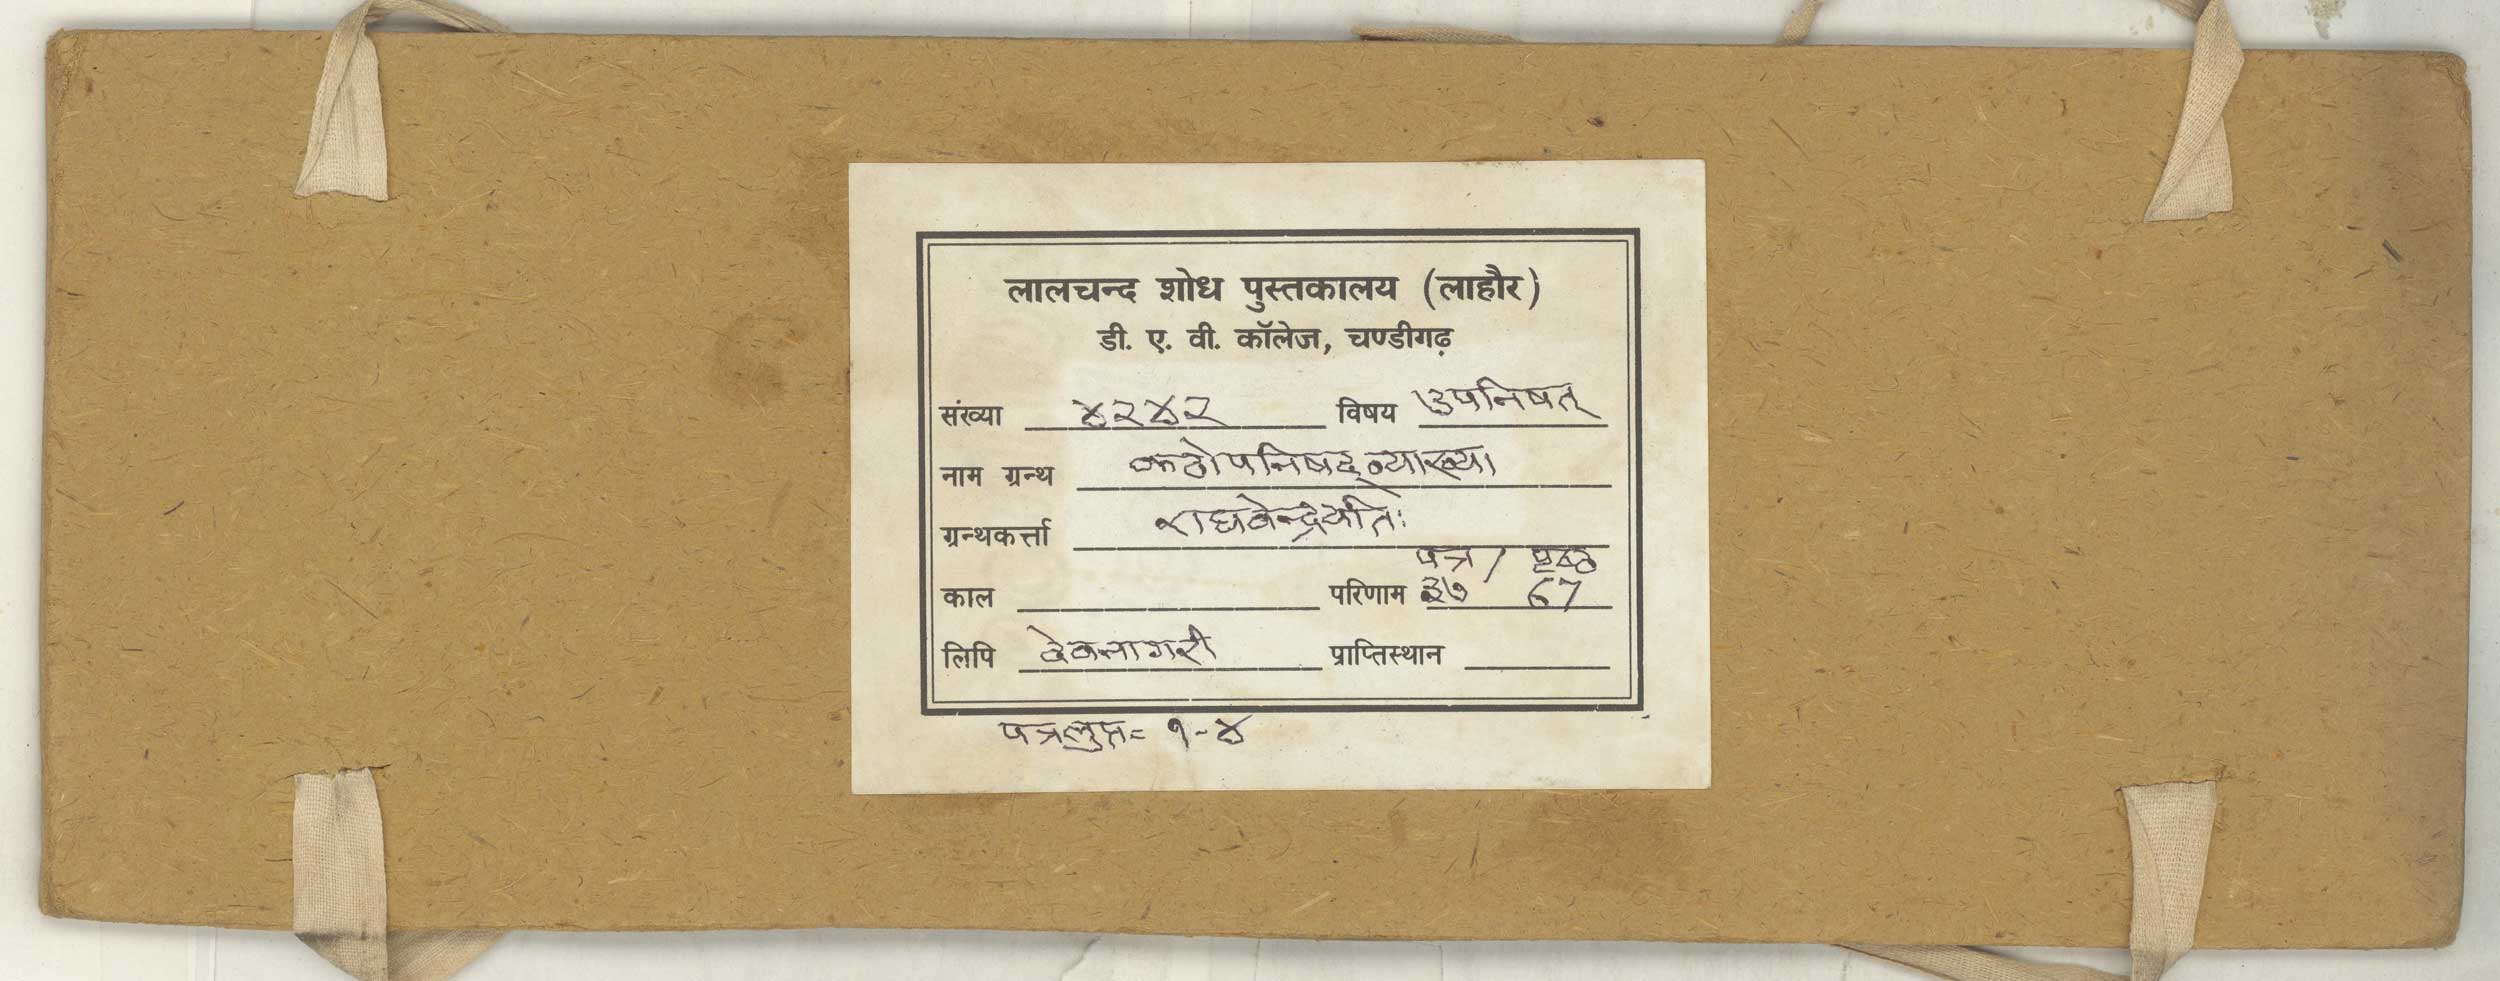 लालचन्द शोध पुस्तकालय (लाहौर)
डी. ए. वी. कॉलेज, चण्डीगढ़
संख्या ४२४२ विषय उपनिषत्
नाम ग्रन्थ कठोपनिषद्व्याख्या
ग्रन्थकर्त्ता राघवेन्द्रयतिः
पत्र / पृष्ठ
काल परिणाम ३७ 67
लिपि देवनागरी प्राप्तिस्थान
पत्रलुप्त= १-४